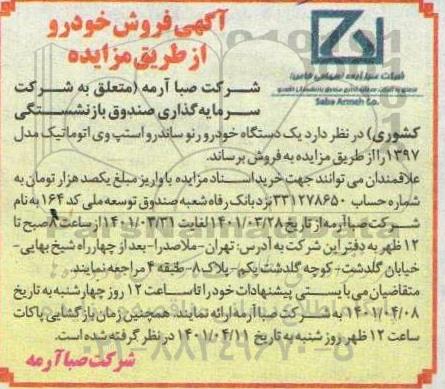 آگهی فروش خودرو
از طریق مزایده
شرکت صبا آرمه (سهامی خاص)
Saba Armeh Co.
شرکت صبا آرمه (متعلق به شرکت
سرمایه گذاری صندوق بازنشستگی
کشوری) در نظر دارد یک دستگاه خودرو رنو ساندرو استپ وی اتوماتیک مدل
۱۳۹۷ را از طریق مزایده به فروش برساند.
علاقمندان می توانند جهت خرید اسناد مزایده با واریز مبلغ یکصد هزار تومان به
شماره حساب ۳۳۱۲۷۸۶۵۰ نزد بانک رفاه شعبه صندوق توسعه ملی کد ۱۶۴ به نام
شرکت صبا آرمه از تاریخ ۱۴۰۱/۰۳/۲۸ لغایت ۱۴۰۱/۰۳/۳۱ از ساعت ۸ صبح تا
۱۲ ظهر به دفتر این شرکت به آدرس: تهران-ملاصدرا- بعد از چهارراه شیخ بهایی-
خیابان گلدشت- کوچه گلدشت یکم- پلاک ۸- طبقه ۴ مراجعه نمایند.
متقاضیان می بایستی پیشنهادات خود را تا ساعت ۱۲ روز چهارشنبه به تاریخ
۱۴۰۱/۰۴/۰۸ به شرکت صبا آرمه ارائه نمایند. همچنین زمان بازگشایی پاکات
ساعت ۱۲ ظهر روز شنبه به تاریخ ۱۴۰۱/۰۴/۱۱ در نظر گرفته شده است.
شرکت صبا آرمه
۰۲۱-۸۸۳۴۹۶۷۰-۵